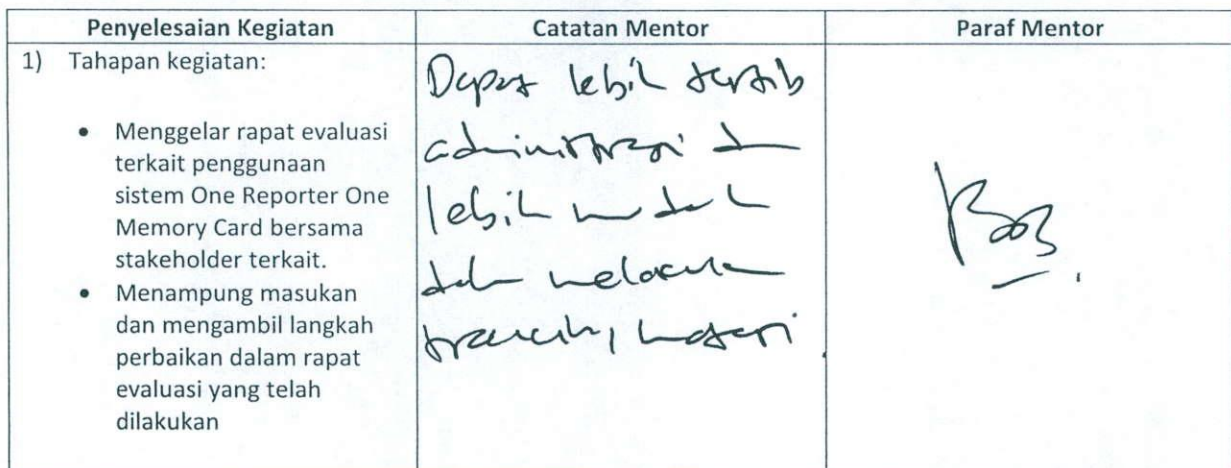 Penyelesaian Kegiatan
Catatan Mentor
Paraf Mentor
1) Tahapan kegiatan:
• Menggelar rapat evaluasi
terkait penggunaan
sistem One Reporter One
Memory Card bersama
stakeholder terkait.
• Menampung masukan
dan mengambil langkah
perbaikan dalam rapat
evaluasi yang telah
dilakukan
Dapat lebih tertib
administrasi dan
lebih mudah
dalam melacak
materi.